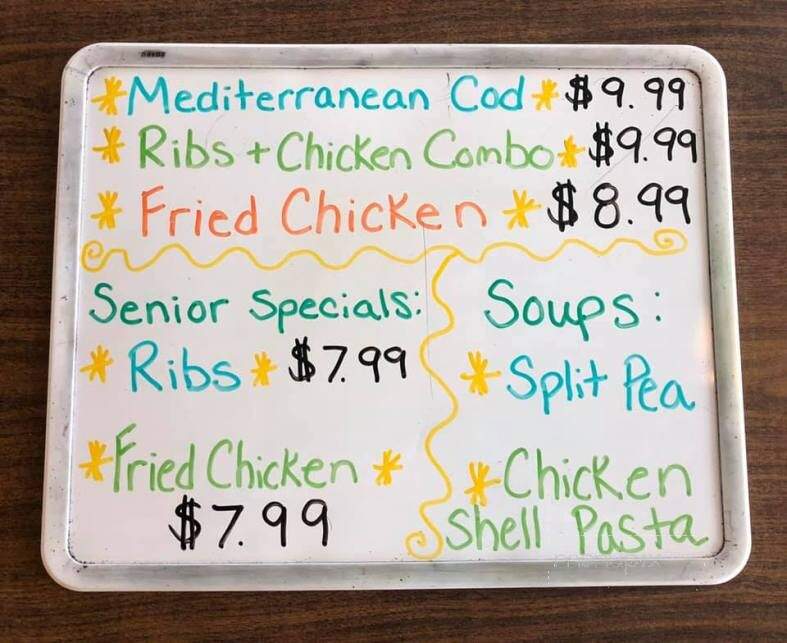 *Mediterranean Cod* $9.99
* Ribs + Chicken Combo* $9.99
* Fried Chicken * $8.99
Senior Specials:
* Ribs * $7.99
*Fried Chicken *
$7.99
Soups:
* Split Pea
*Chicken
Shell Pasta